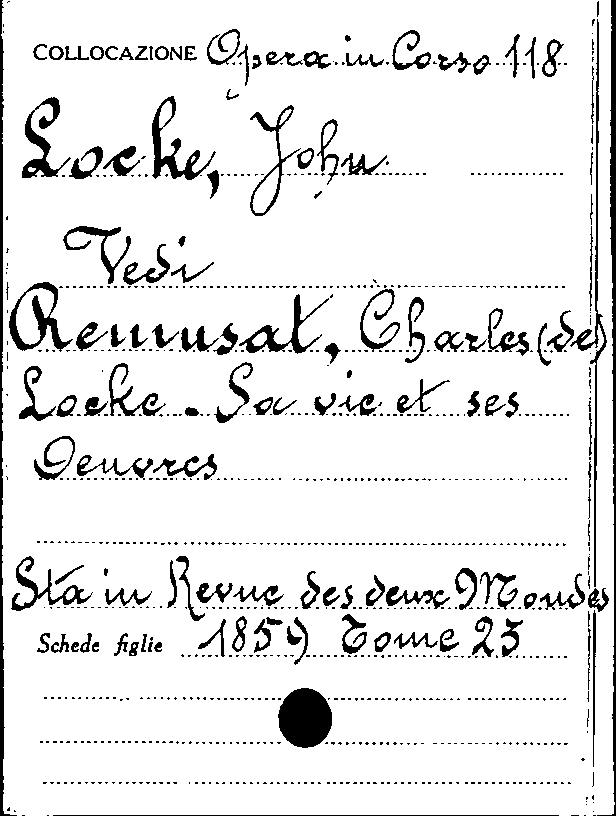 COLLOCAZIONE Opera in Corso 118
Locke, John
Vedi
Remusat, Charles (de)
Locke - Sa vie et ses
Oeuvres
Sta in Revue des deux Mondes
Schede figlie 1859 Tome 23